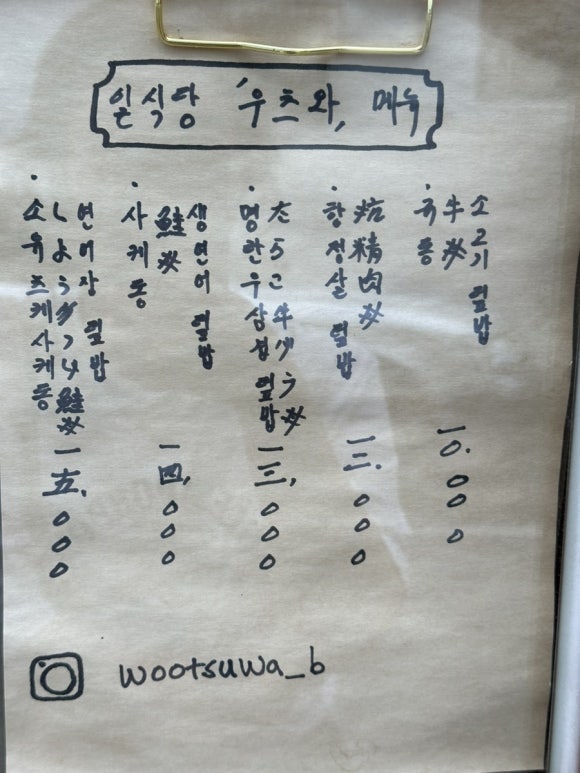 일식당 '우츠와, 메뉴
소고기 덮밥
牛丼
· 규동
一〇.〇〇〇
抗精肉丼
· 항정살 덮밥
一三.〇〇〇
たらこ牛バラ丼
· 명란우삼겹 덮밥
一三,〇〇〇
생연어 덮밥
鮭丼
· 사케동
一四,〇〇〇
연어장 덮밥
しょうゆづけ鮭丼
· 소유즈케사케동
一五,〇〇〇
wootsuwa_b